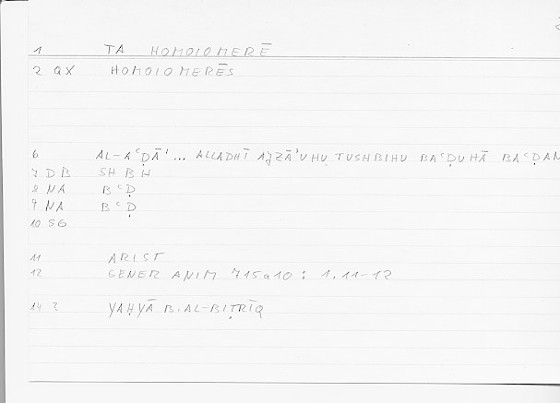 1 TA HOMOIOMERĒ
2 QX HOMOIOMERĒS
6 AL-AʿḌĀʾ... ALLADHĪ AJZĀʾUHU TUSHBIHU BAʿḌUHĀ BAʿḌAN
7 DB SH B H
8 NA B ʿ Ḍ
9 NA B ʿ Ḍ
10 SG
11 ARIST
12 GENER ANIM 715a10 : 1,11-12
14 2 YAḤYĀ B. AL-BIṬRĪQ